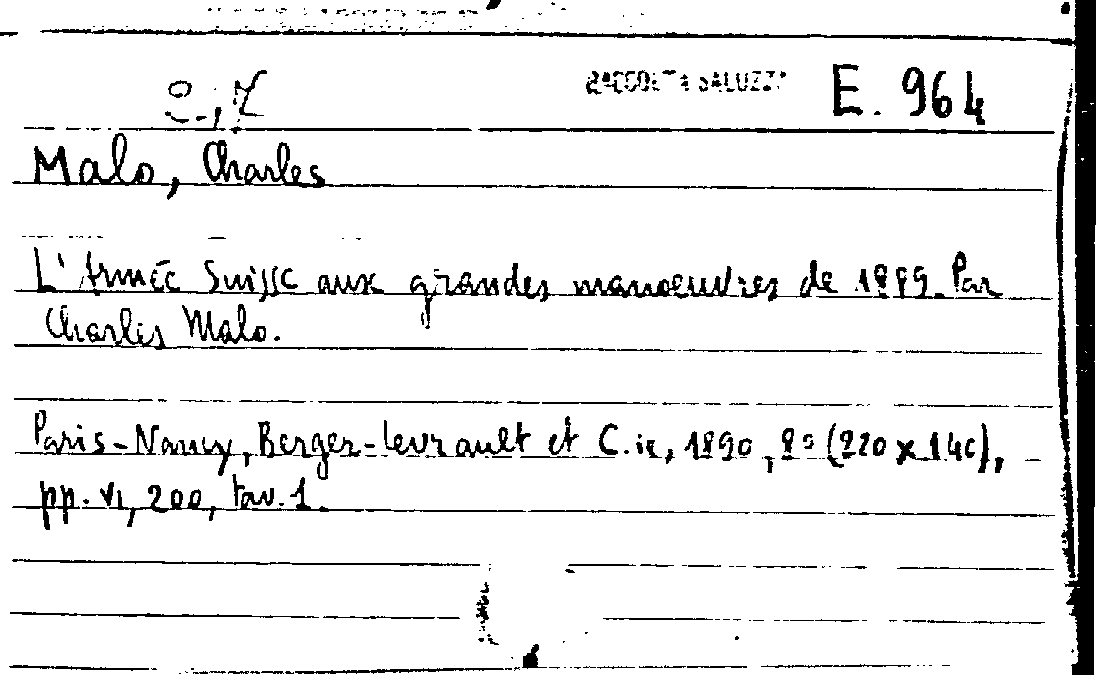 RACCOLTA SALUZZO E. 964
Malo, Charles
L'Armée Suisse aux grandes manoeuvres de 1889. Par
Charles Malo.
Paris-Nancy, Berger-Levrault et C.ie, 1890, 8º (220 x 140),
pp. VI, 200, tav. 1.